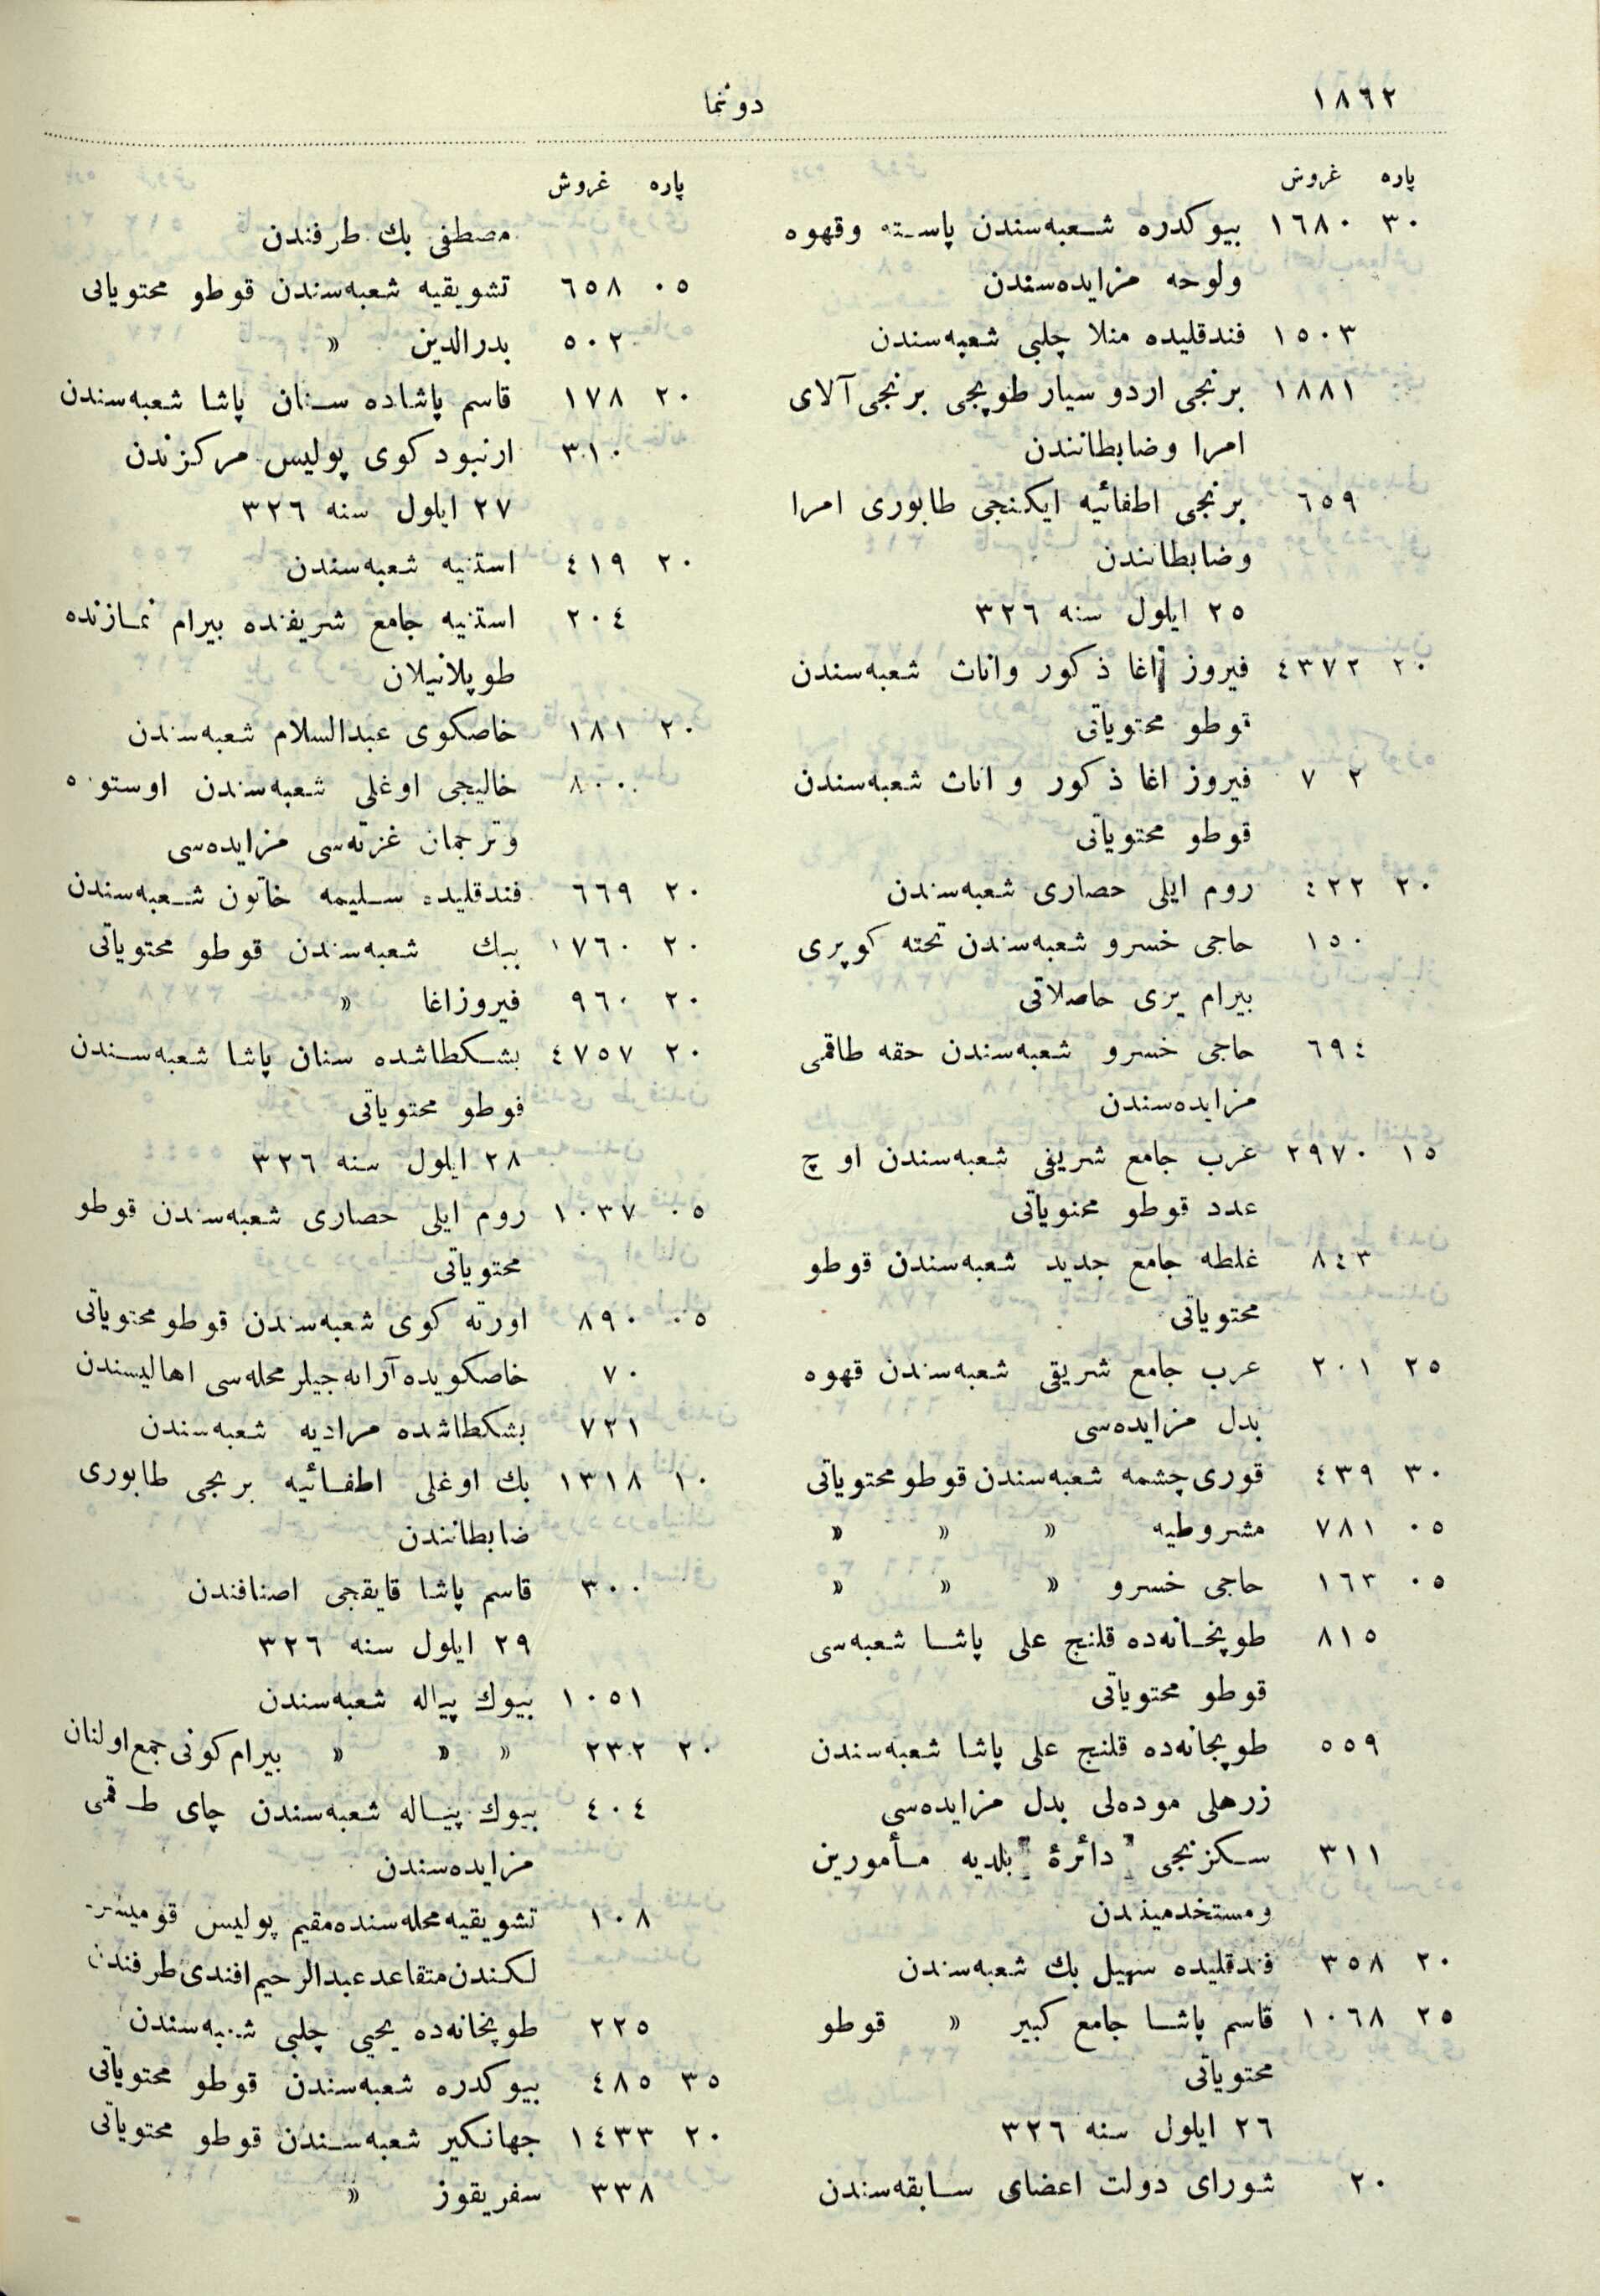 ١٨٦٢
دوننما
پاره غروش
٣٠ ١٦٨٠ بیوكدره شعبه‌سندن پاسته وقهوه
ولوحه مزایده‌سندن
١٥٠٣ فندقلیده منلا چلبی شعبه‌سندن
١٨٨١ برنجی اردو سیار طوپجی برنجی آلای
امرا وضابطانندن
٦٥٩ برنجی اطفائیه ایكنجی طابوری امرا
وضابطانندن
٢٥ ایلول سنه ٣٢٦
٢٠ ٤٣٧٢ فیروز اغا ذكور واناث شعبه‌سندن
قوطو محتویاتی
٢ ٧ فیروز اغا ذكور و اناث شعبه‌سندن
قوطو محتویاتی
٢٠ ٤٢٢ روم ایلی حصاری شعبه‌سندن
١٥٠ حاجی خسرو شعبه‌سندن تحته كوپری
بیرام یری حاصلاتی
٦٩٤ حاجی خسرو شعبه‌سندن حقه طاقمی
مزایده‌سندن
١٥ ٢٩٧٠ عرب جامع شریفی شعبه‌سندن اوچ
عدد قوطو محتویاتی
٨٤٣ غلطه جامع جدید شعبه‌سندن قوطو
محتویاتی
٢٥ ٢٠١ عرب جامع شریفی شعبه‌سندن قهوه
بدل مزایده‌سی
٣٠ ٤٣٩ قوری چشمه شعبه‌سندن قوطو محتویاتی
٠٥ ٧٨١ مشروطیه » » »
٠٥ ١٦٣ حاجی خسرو » » »
٨١٥ طوپخانه‌ده قلنج علی پاشا شعبه‌سی
قوطو محتویاتی
٥٥٩ طوپخانه‌ده قلنج علی پاشا شعبه‌سندن
زرهلی موده‌لی بدل مزایده‌سی
٣١١ سكزنجی دائرهٔ بلدیه مأمورین
ومستخدمیندن
٢٠ ٣٥٨ فندقلیده سهیل بك شعبه‌سندن
٢٥ ١٠٦٨ قاسم پاشا جامع كبیر » قوطو
محتویاتی
٢٦ ایلول سنه ٣٢٦
٢٠ شورای دولت اعضای سابقه‌سندن
پاره غروش
مصطفی بك طرفندن
٠٥ ٦٥٨ تشویقیه شعبه‌سندن قوطو محتویاتی
٥٠٢ بدرالدین »
٢٠ ١٧٨ قاسم پاشاده سنان پاشا شعبه‌سندن
٣١٠ ارنبودكوی پولیس مركزندن
٢٧ ایلول سنه ٣٢٦
٢٠ ٤١٩ استنیه شعبه‌سندن
٢٠٤ استنیه جامع شریفنده بیرام نمازنده
طوپلانیلان
٢٠ ١٨١ خاصكوی عبدالسلام شعبه‌سندن
٨٠٠ خالیجی اوغلی شعبه‌سندن
وترجمان غزته‌سی مزایده‌سی
٢٠ ٦٦٩ فندقلیده سلیمه خاتون شعبه‌سندن
٢٠ ٧٦٠ ببك شعبه‌سندن قوطو محتویاتی
٢٠ ٩٦٠ فیروزاغا »
٢٠ ٤٧٥٧ بشكطاشده سنان پاشا شعبه‌سندن
قوطو محتویاتی
٢٨ ایلول سنه ٣٢٦
٠٥ ١٠٣٧ روم ایلی حصاری شعبه‌سندن قوطو
محتویاتی
٠٥ ٨٩٠ اورته كوی شعبه‌سندن قوطو محتویاتی
٧٠ خاصكویده آرابه‌جیلر محله‌سی اهالیسندن
٧٢١ بشكطاشده مرادیه شعبه‌سندن
١٠ ١٣١٨ بك اوغلی اطفائیه برنجی طابوری
ضابطانندن
٣٠٠ قاسم پاشا قایقجی اصنافندن
٢٩ ایلول سنه ٣٢٦
١٠٥١ بیوك پیاله شعبه‌سندن
٢٠ ٢٣٢ » » » بیرام كونی جمع اولنان
٤٠٤ بیوك پیاله شعبه‌سندن چای طاقمی
مزایده‌سندن
١٠٨ تشویقیه محله‌سنده مقیم پولیس قومیسر
لكندن متقاعد عبدالرحیم افندی طرفندن
٢٢٥ طوپخانه‌ده یحیی چلبی شعبه‌سندن
٣٥ ٤٨٥ بیوكدره شعبه‌سندن قوطو محتویاتی
٢٠ ١٤٣٣ جهانكیر شعبه‌سندن قوطو محتویاتی
٣٣٨ سفریقوز »